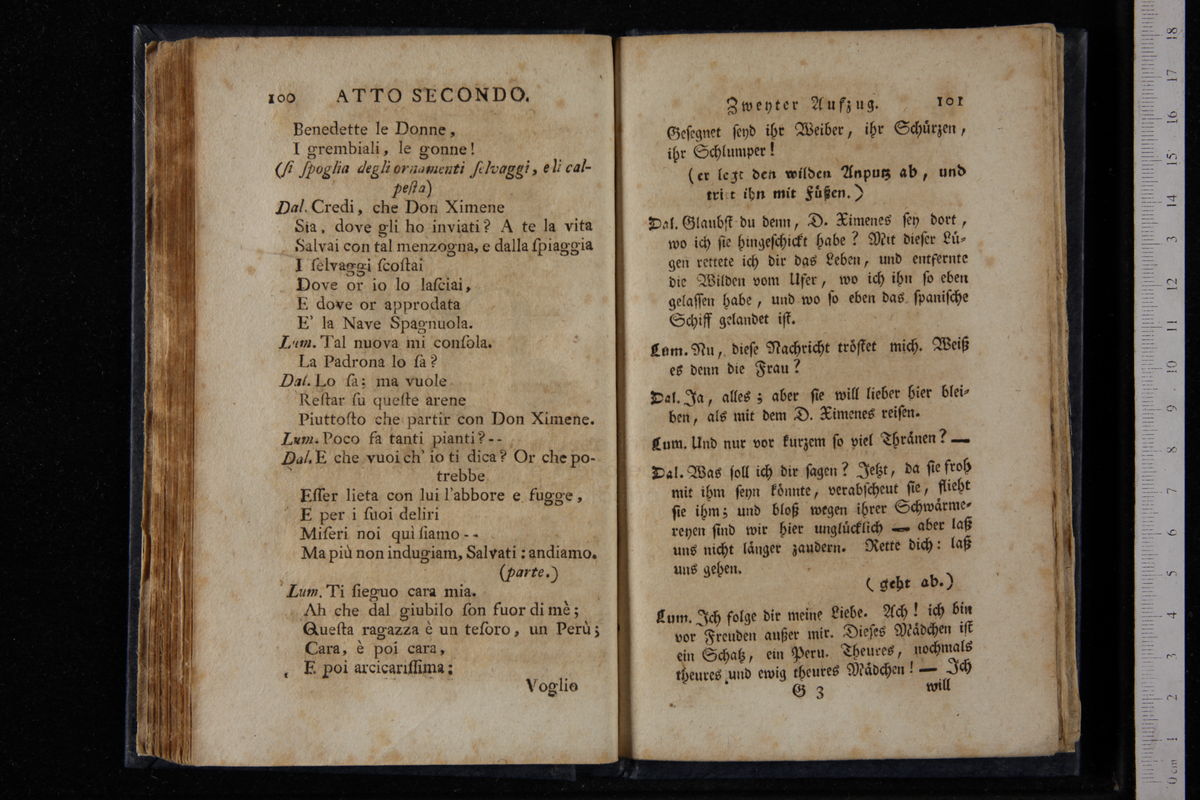 100 ATTO SECONDO.
Benedette le Donne,
I grembiali, le gonne!
(ſi ſpoglia degli ornamenti ſelvaggi, e li cal-
peſta)
Dal. Credi, che Don Ximene
Sia, dove gli ho inviati? A te la vita
Salvai con tal menzogna, e dalla ſpiaggia
I ſelvaggi ſcoſtai
Dove or io lo laſciai,
E dove or approdata
E' la Nave Spagnuola.
Lum. Tal nuova mi conſola.
La Padrona lo ſa?
Dal. Lo ſa; ma vuole
Reſtar ſu queſte arene
Piuttoſto che partir con Don Ximene.
Lum. Poco fa tanti pianti? --
Dal. E che vuoi ch' io ti dica? Or che po-
trebbe
Eſſer lieta con lui l'abbore e fugge,
E per i ſuoi deliri
Miſeri noi qui ſiamo --
Ma più non indugiam, Salvati: andiamo.
(parte.)
Lum. Ti ſieguo cara mia.
Ah che dal giubilo ſon fuor di mè;
Queſta ragazza è un teſoro, un Perù;
Cara, è poi cara,
E poi arcicariſſima;
Voglio
Zweyter Aufzug. 101
Geſegnet ſeyd ihr Weiber, ihr Schürzen,
ihr Schlumper!
(er legt den wilden Anputz ab, und
tritt ihn mit Füßen.)
Dal. Glaubſt du denn, D. Ximenes ſey dort,
wo ich ſie hingeſchickt habe? Mit dieſer Lü-
gen rettete ich dir das Leben, und entfernte
die Wilden vom Ufer, wo ich ihn ſo eben
gelaſſen habe, und wo ſo eben das ſpaniſche
Schiff gelandet iſt.
Lum. Nu, dieſe Nachricht tröſtet mich. Weiß
es denn die Frau?
Dal. Ja, alles; aber ſie will lieber hier blei-
ben, als mit dem D. Ximenes reiſen.
Lum. Und nur vor kurzem ſo viel Thränen? —
Dal. Was ſoll ich dir ſagen? Jetzt, da ſie froh
mit ihm ſeyn könnte, verabſcheut ſie, flieht
ſie ihm; und bloß wegen ihrer Schwärme-
reyen ſind wir hier unglücklich — aber laß
uns nicht länger zaudern. Rette dich: laß
uns gehen.
(geht ab.)
Lum. Ich folge dir meine Liebe. Ach! ich bin
vor Freuden außer mir. Dieſes Mädchen iſt
ein Schatz, ein Peru. Theures, nochmals
theures und ewig theures Mädchen! — Ich
G 3 will
0 cm 1 2 3 4 5 6 7 8 9 10 11 12 13 14 15 16 17 18